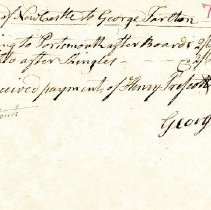 of NewCastle to George Tarlton
ing to Portsmouth after Boards 2/
to after Shingles
eceived payment of Henry Prescott
Georg